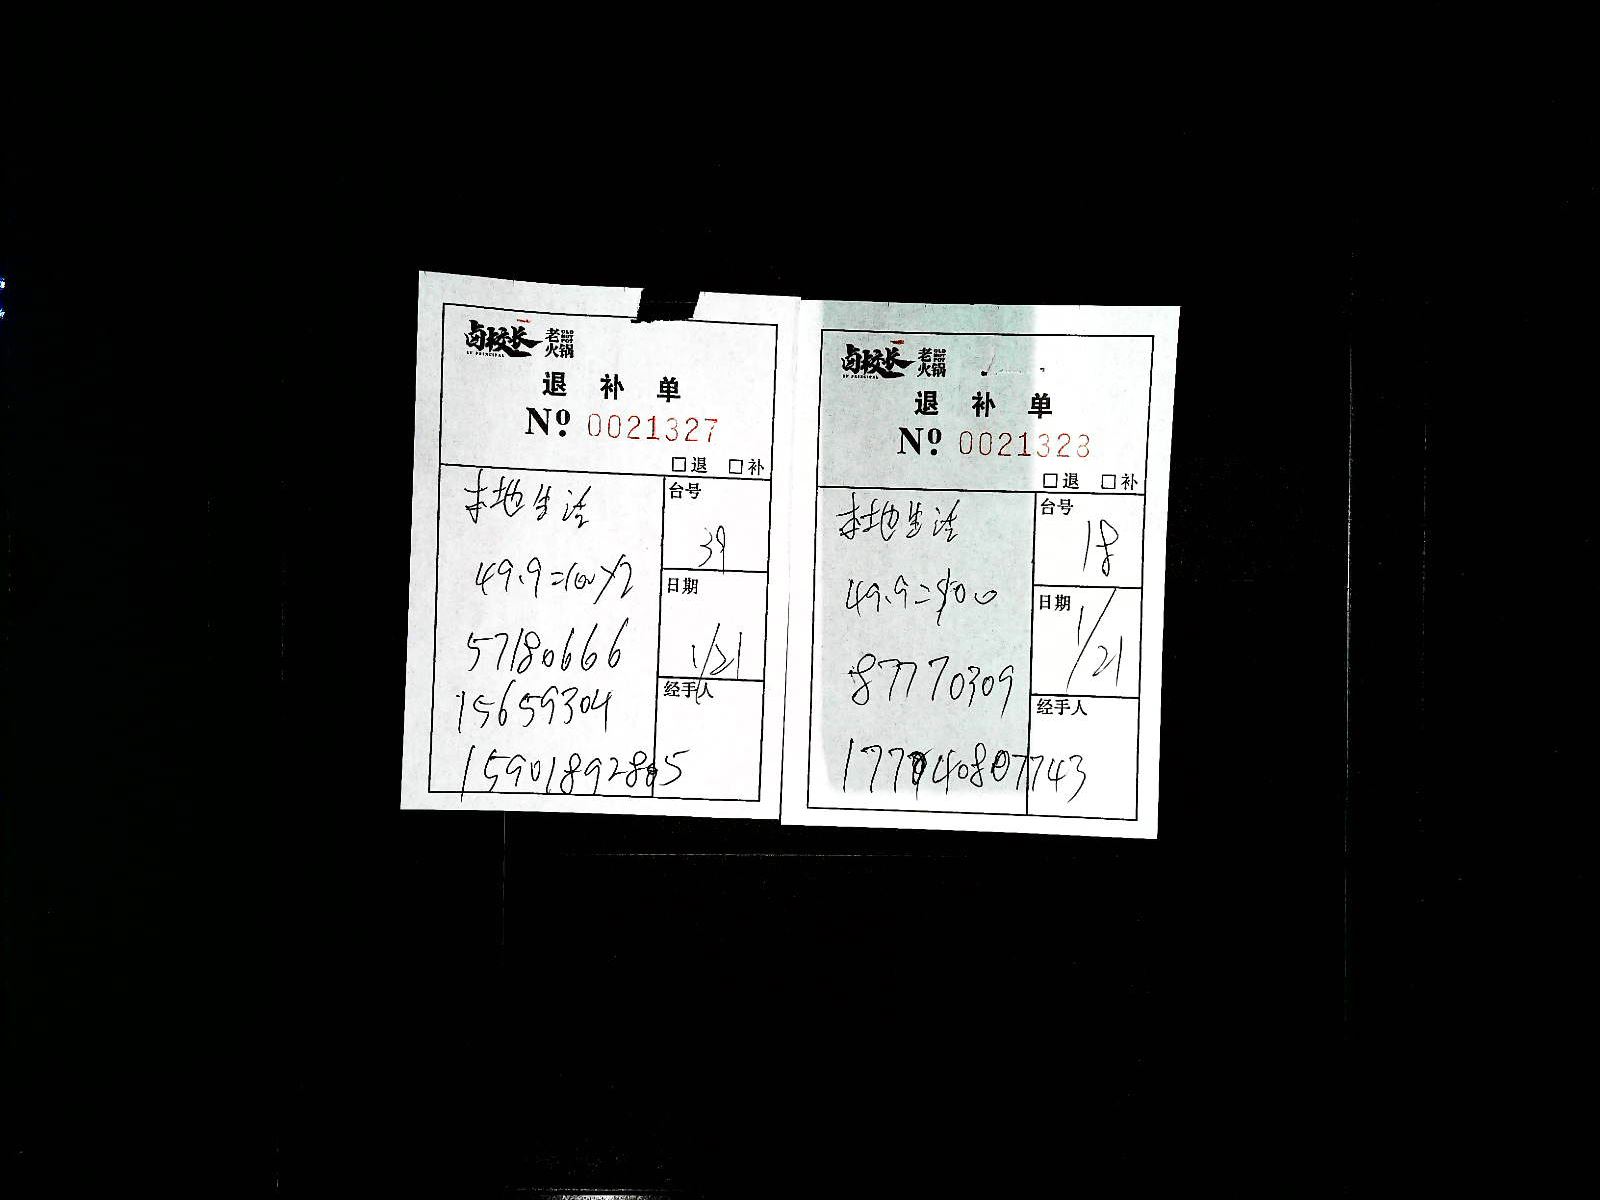 卤校长 老火锅
LU PRINCIPAL
退 补 单
Nº 0021327
□退 □补
本地生活
台号
39
49.9=100×2
日期
1/21
57180666
15659304
经手人
15901892885
卤校长 老火锅
LU PRINCIPAL
退 补 单
Nº 0021328
□退 □补
本地生活
台号
18
49.9=100
日期
1/21
87770309
经手人